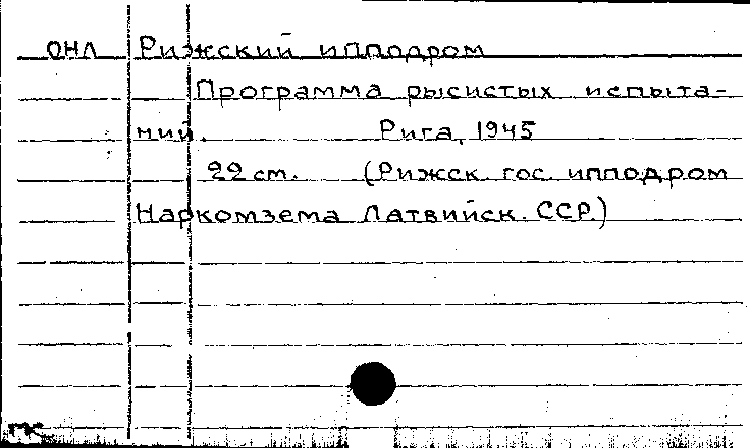 ОНЛ Рижский ипподром
Программа рысистых испыта-
ний. Рига, 1945
22 см. (Рижск. гос. ипподром
Наркомзема Латвийск. ССР.)
гк